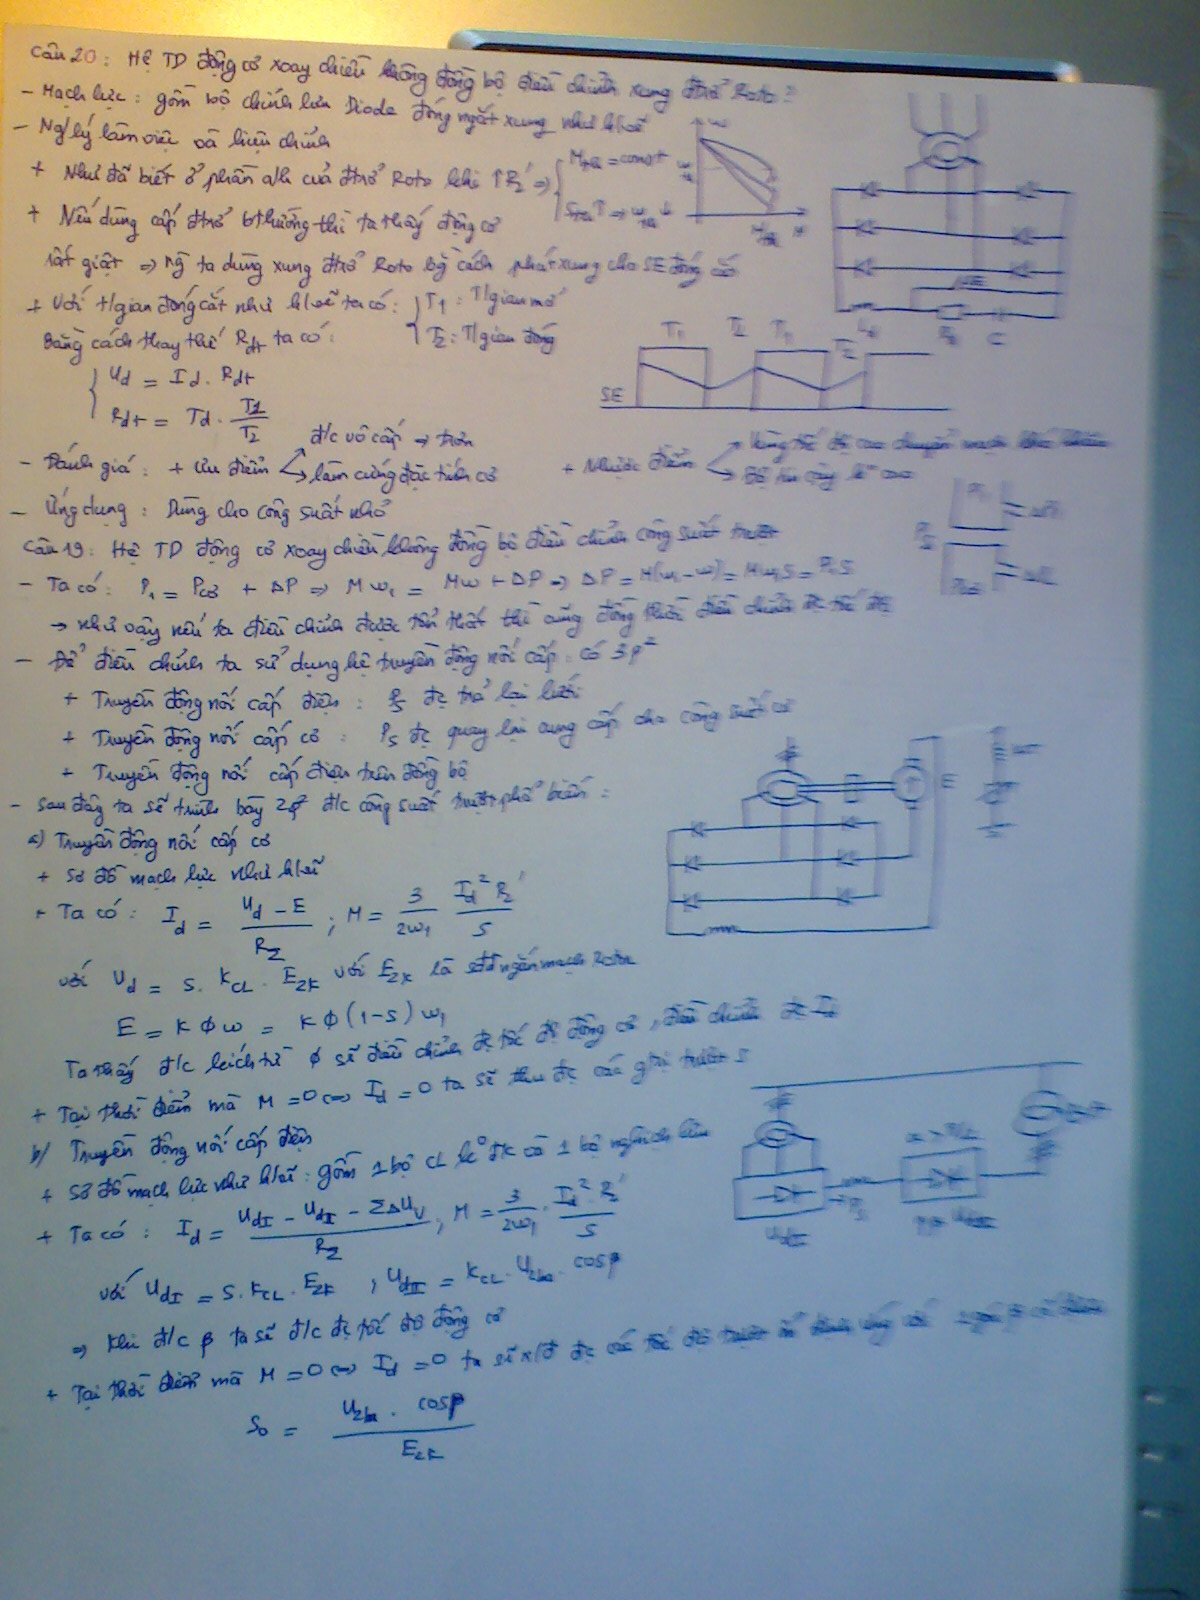 Câu 20: Hệ TĐ động cơ xoay chiều không đồng bộ điều chỉnh xung đtrở Roto?
- Mạch lực: gồm bộ chỉnh lưu Diode đóng ngắt xung như hvẽ
- Ng/lý làm việc và hiệu chỉnh
+ Như đã biết ở phần a/h của đtrở Roto khi ↑R₂' ⇒ { Mth = const
Sth ↑ ⇒ ωth ↓
+ Nếu dùng cấp đtrở bthường thì ta thấy động cơ
rất giật ⇒ ng ta dùng xung đtrở Roto bg cách phát xung cho SE đóng cắt
+ Với t/gian đóng cắt như h/vẽ ta có: { T1: T/gian mở
T2: T/gian đóng
Bằng cách thay thế Rdt ta có:
{ Ud = Id. Rdt
Rdt = Td. T1/T2
T1 T2 T1 T2
SE
- Đánh giá: + ưu điểm → đ/c vô cấp → trơn
→ làm cứng đặc tính cơ
+ Nhược điểm
- Ứng dụng: Dùng cho công suất nhỏ
Câu 19: Hệ TĐ động cơ xoay chiều không đồng bộ điều chỉnh công suất trượt
- Ta có: P₁ = Pcơ + ΔP ⇒ Mω₁ = Mω + ΔP ⇒ ΔP = M(ω₁ - ω) = Mω₁S = P₁S
→ như vậy nếu ta điều chỉnh được tổn thất thì cũng đồng thời điều chỉnh đc tốc độ
- Để điều chỉnh ta sử dụng hệ truyền động nối cấp: có 3p²
+ Truyền động nối cấp điện: Ps đc trả lại lưới
+ Truyền động nối cấp cơ: Ps đc quay lại cung cấp cho công suất cơ
+ Truyền động nối cấp điện trên đồng bộ
- Sau đây ta sẽ trình bày 2p² đ/c công suất trượt phổ biến:
a) Truyền động nối cấp cơ
+ Sơ đồ mạch lực như h/vẽ
+ Ta có: Id = (Ud - E)/RΣ ; M = 3/2ω₁ Id² R₂'/S
với Ud = S. KCL. E2K với E2K là sđđ ngắn mạch Roto
E = KΦω = KΦ(1-S)ω₁
Ta thấy đ/c kích từ Φ sẽ điều chỉnh đc tốc độ động cơ, điều chỉnh đc Id
+ Tại thời điểm mà M = 0 ⇔ Id = 0 ta sẽ thu đc các gtrị trượt S
b/ Truyền động nối cấp điện
+ Sơ đồ mạch lực như h/vẽ: gồm 1 bộ CL k° đk và 1 bộ nghịch lưu
+ Ta có: Id = (UdI - UdI - ΣΔUv)/RΣ ; M = 3/2ω₁ . Id² R₂'/S
với UdI = S. KCL. E2K , UdII = KCL. U2ba. cosβ
⇒ Khi đ/c β ta sẽ đ/c đc tốc độ động cơ
+ Tại thời điểm mà M = 0 ⇔ Id = 0 ta sẽ x/đ đc các tốc độ trượt
S₀ = U2ba. cosβ / E2K